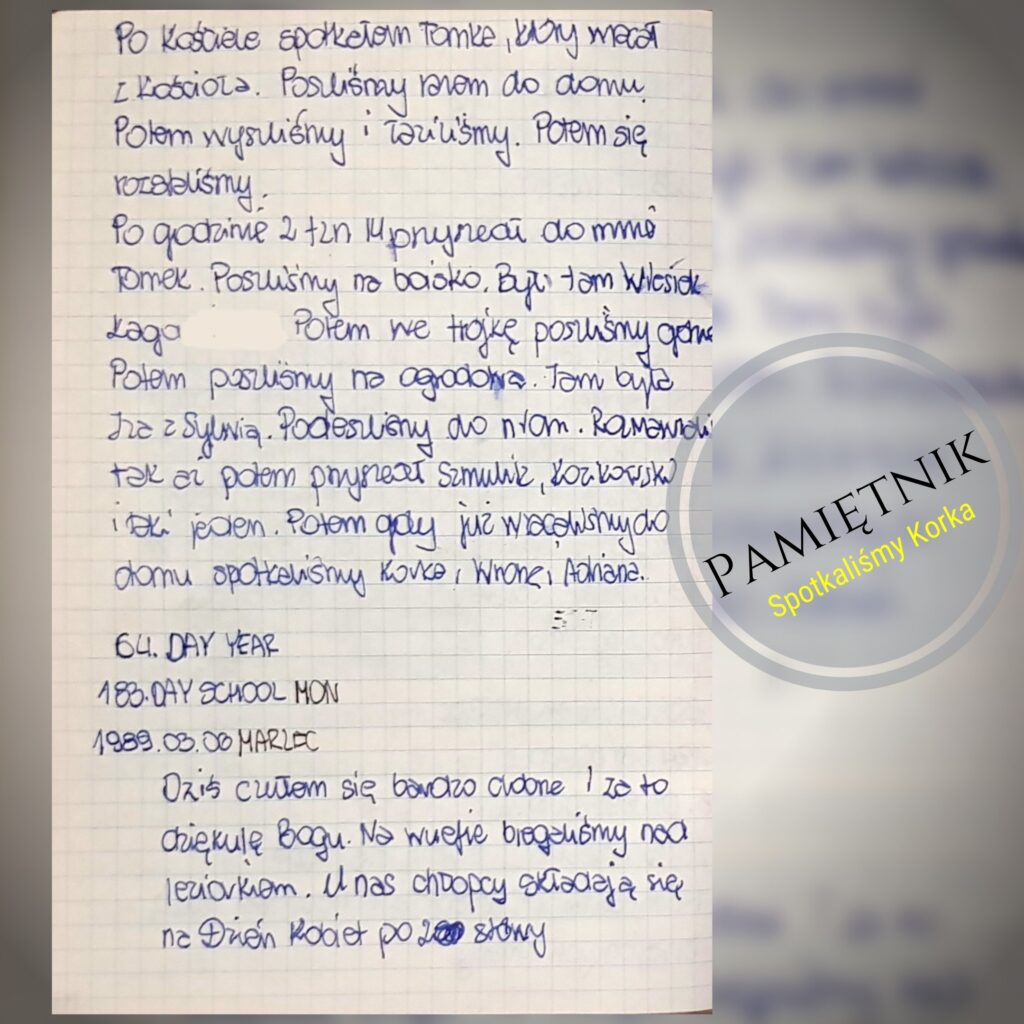 Po Kościele spotkałem Tomka, który wracał
z Kościoła. Poszliśmy razem do domu.
Potem wyszliśmy i łaziliśmy. Potem się
rozstaliśmy.
Po godzinie 2 tzn 14 przyszedł do mnie
Tomek. Poszliśmy na boisko. Byli tam Wiesiek
Łaga Potem we trójkę poszliśmy
Potem poszliśmy na ogrodową. Tam była
Iza z Sylwią. Podeszliśmy do nich.
tak aż potem przyszedł Szmulik, Kozłowski
i taki jeden. Potem gdy już wracaliśmy do
domu spotkaliśmy Korka, Wronę i Adriana.
64. DAY YEAR
183. DAY SCHOOL MON
1989.03.06 MARZEC
Dziś czułem się bardzo dobrze i za to
dziękuję Bogu. Na wuefie biegaliśmy nad
jeziorkiem. U nas chłopcy składają się
na Dzień Kobiet po stówy
PAMIĘTNIK
Spotkaliśmy Korka